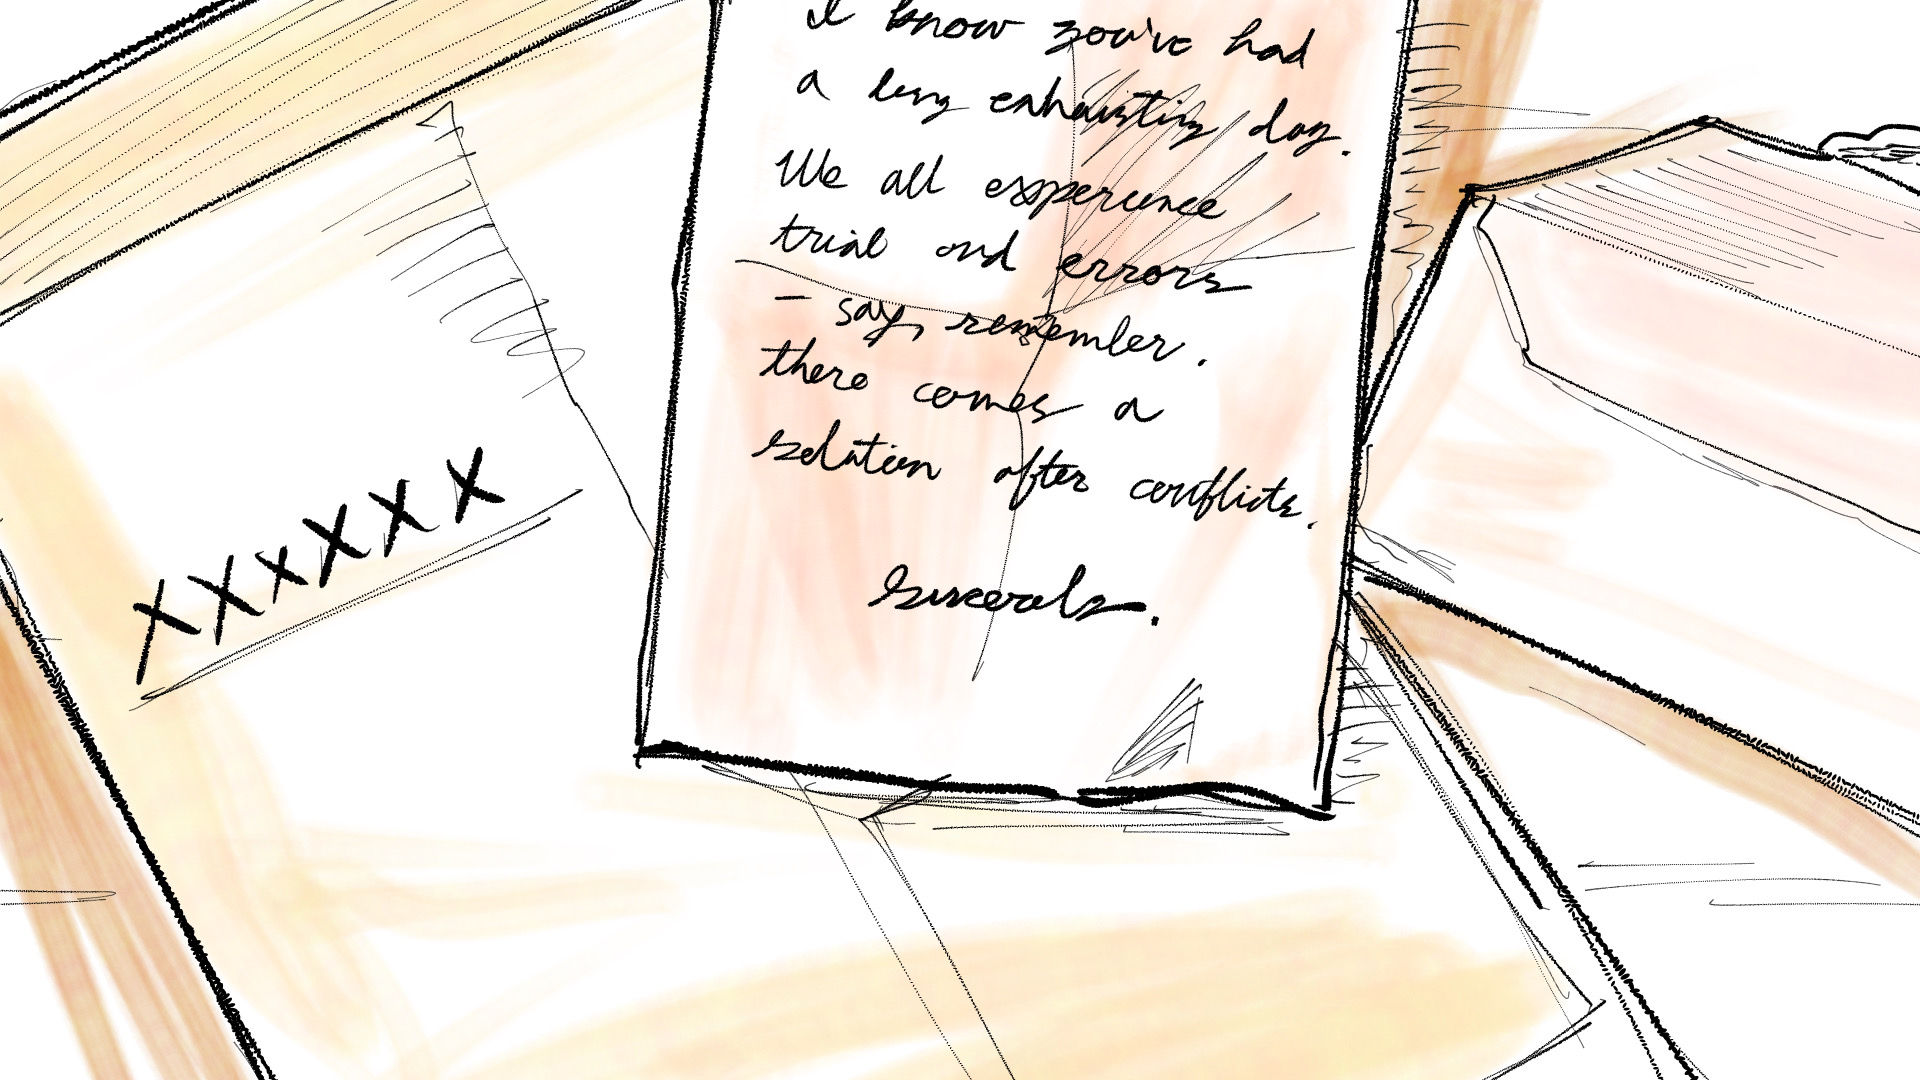 I know you've had
a long exhausting day.
We all experience
trial and errors
– say, remember.
there comes a
solution after conflicts.
Sincerely.
XXXXXX